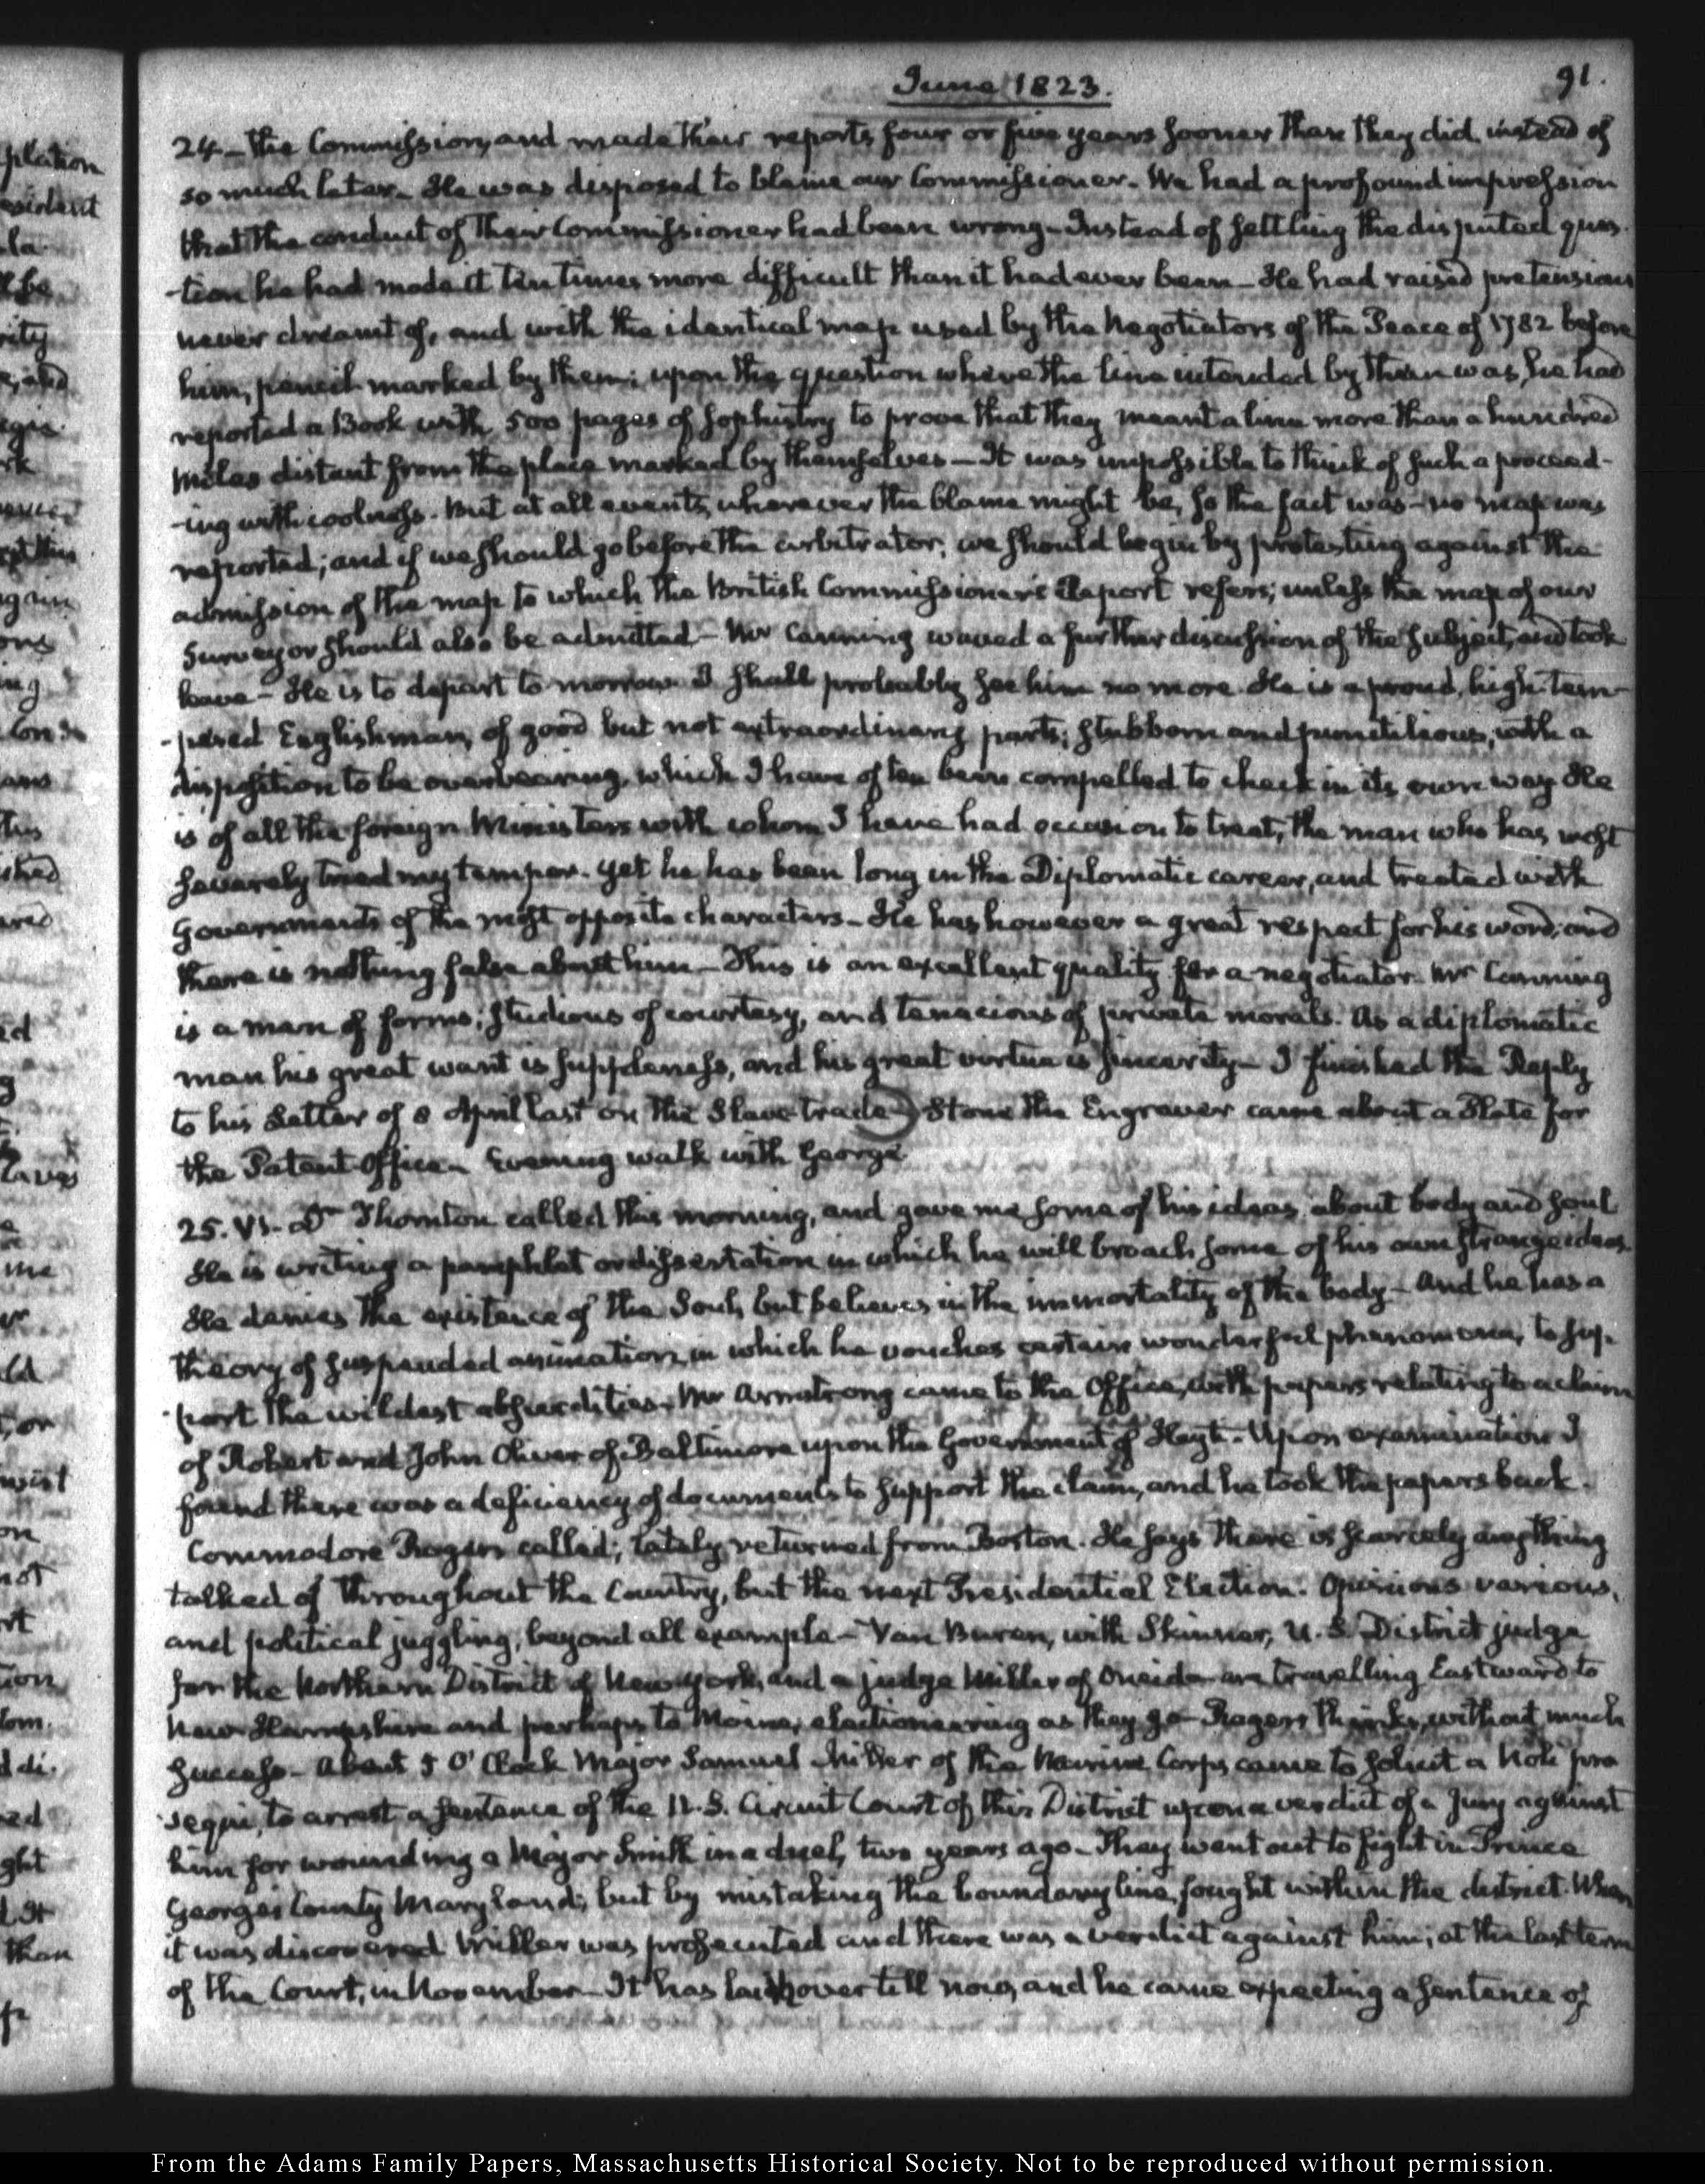 June 1823.
91.
24 - the Commission, and made their reports four or five years sooner than they did, instead of
so much later. He was disposed to blame our Commissioner. We had a profound impression
that the conduct of their Commissioner had been wrong - Instead of settling the disputed ques-
-tion he had made it ten times more difficult than it had ever been - He had raised pretensions
never dreamt of, and with the identical map used by the Negotiators of the Peace of 1782 before
him, pencil marked by them; upon the question where the line intended by them was, he had
reported a Book with 500 pages of sophistry to prove that they meant a line more than a hundred
miles distant from the place marked by themselves - It was impossible to think of such a proceed-
-ing with coolness. But at all events, wherever the blame might be, so the fact was - no map was
reported; and if we should go before the arbitrator, we should begin by protesting against the
admission of the map to which the British Commissioner's Report refers; unless the map of our
Surveyor should also be admitted - Mr Canning waved a further discussion of the subject, and took
leave - He is to depart to morrow. I shall probably see him no more. He is a proud, high-tem-
-pered Englishman, of good but not extraordinary parts; stubborn and punctilious, with a
disposition to be overbearing, which I have often been compelled to check in its own way. He
is of all the foreign Ministers with whom I have had occasion to treat, the man who has most
severely tried my temper. Yet he has been long in the Diplomatic career, and treated with
Governments of the most opposite characters - He has however a great respect for his word, and
there is nothing false about him - This is an excellent quality for a negotiator. Mr Canning
is a man of forms; studious of courtesy, and tenacious of private morals. As a diplomatic
man his great want is suppleness, and his great virtue is sincerity - I finished the Reply
to his Letter of 8 April last on the Slave-trade - Stone the Engraver came about a Plate for
the Patent Office. Evening walk with George.
25. VI. Dr Thornton called this morning, and gave me some of his ideas about body and soul
He is writing a pamphlet or dissertation in which he will broach some of his own strange ideas
He denies the existence of the Soul, but believes in the immortality of the body - And he has a
theory of suspended animation, in which he vouches certain wonderful phenomena, to sup-
-port the wildest absurdities. Mr Armstrong came to the Office, with papers relating to a claim
of Robert and John Oliver of Baltimore upon the Government of Hayti. Upon examination I
found there was a deficiency of documents to support the claim, and he took the papers back.
Commodore Rodgers called; lately returned from Boston. He says there is scarcely any thing
talked of throughout the Country, but the next Presidential Election. Opinions various,
and political juggling, beyond all example - Van Buren, with Skinner, U.S. District judge
for the Northern District of New York, and a judge Miller of Oneida are travelling Eastward to
New Hampshire and perhaps to Maine, electioneering as they go - Rogers thinks, without much
success - About 5 O'Clock Major Samuel Miller of the Marine Corps came to solicit a Noli pro
-sequi, to arrest a sentence of the U.S. Circuit Court of this District upon a verdict of a Jury against
him for wounding a Major Smith in a duel, two years ago - They went out to fight in Prince
Georges County Maryland; but by mistaking the boundary line, fought within the district. When
it was discovered Miller was prosecuted and there was a verdict against him; at the last term
of the Court, in November - It has laid over till now, and he came expecting a sentence of
From the Adams Family Papers, Massachusetts Historical Society. Not to be reproduced without permission.